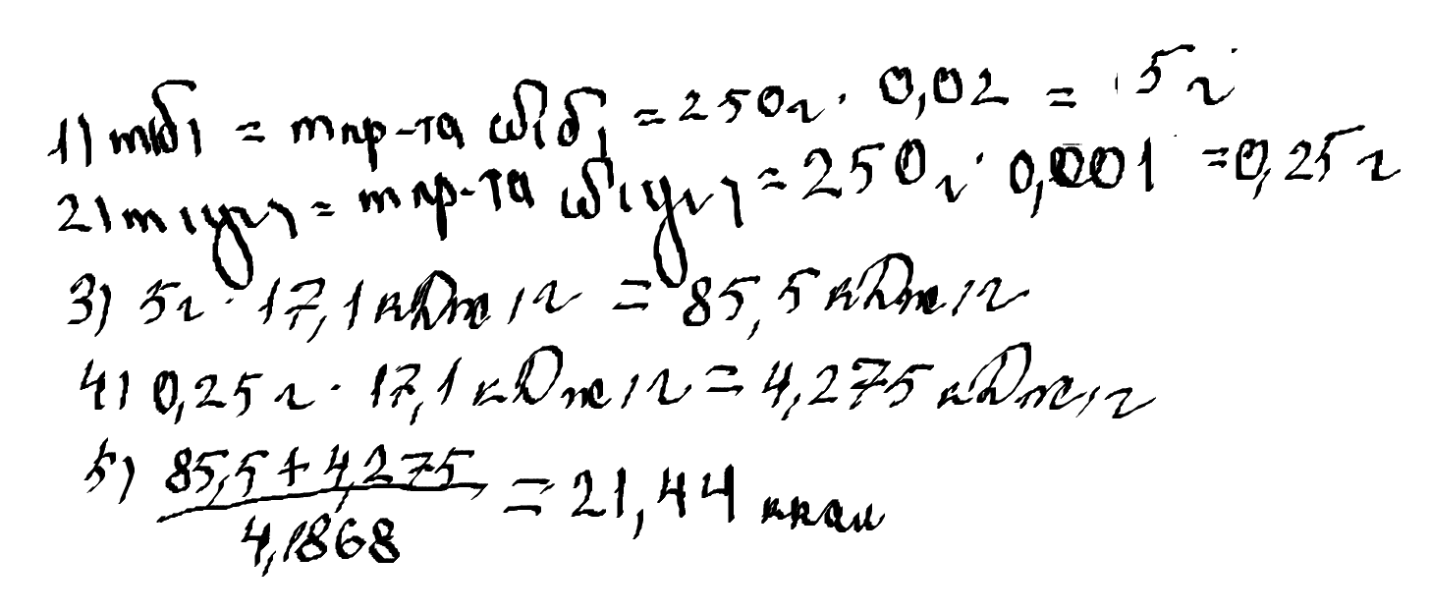 1) m(б) = mпр-та ω(б) = 250г · 0,02 = 5г
2) m(угл) = mпр-та ω(угл) = 250г · 0,001 = 0,25г
3) 5г · 17,1 кДж/г = 85,5 кДж/г
4) 0,25г · 17,1 кДж/г = 4,275 кДж/г
5) (85,5 + 4,275) / 4,1868 = 21,44 ккал